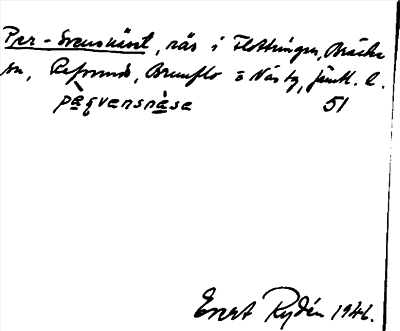 Per-Svensnäset, näs i Flottningen, Bräcke
sn, Refsunds, Brunflo o Näs tg, Jämtl. l.
pàqvansnàse 51
Ernst Rydén 1946.